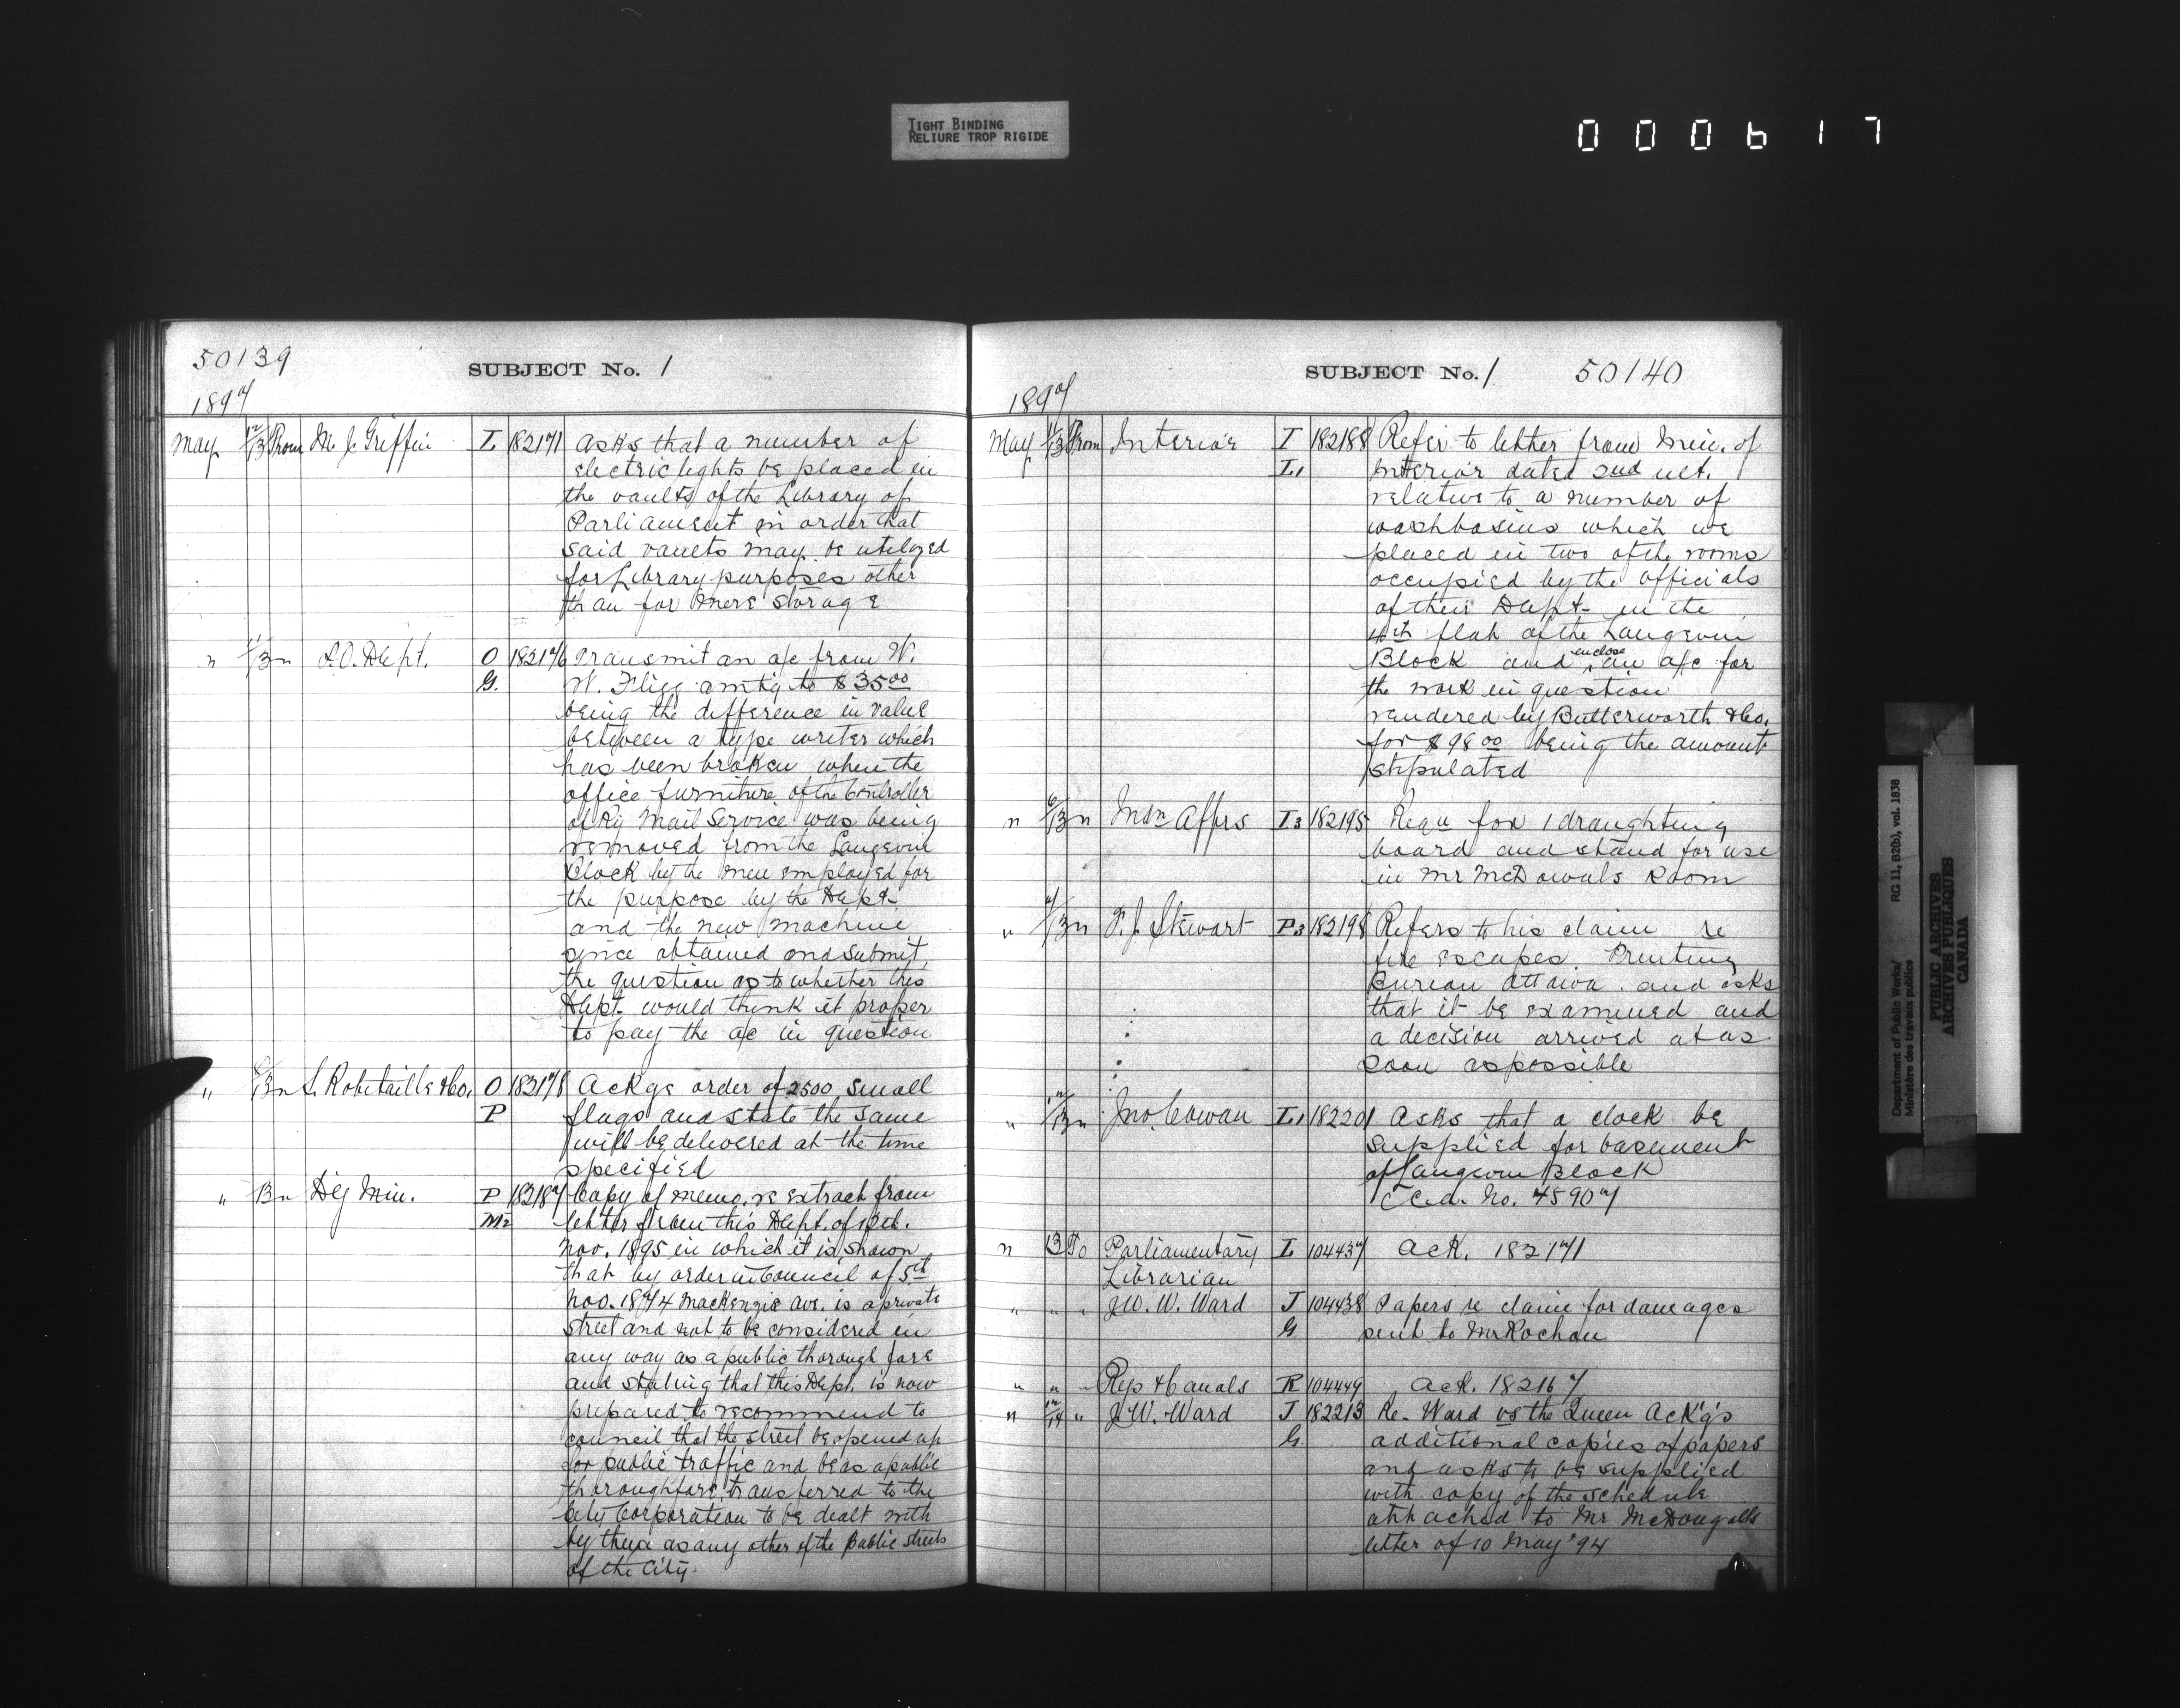 TIGHT BINDING
RELIURE TROP RIGIDE
000617
50139
SUBJECT No. 1
1897
May 12/13 From M. J. Griffin L 182171 Asks that a number of
electric lights be placed in
the vaults of the Library of
Parliament in order that
said vaults may be utilized
for Library purposes other
than for mere storage
" 11/13 " P.O. Dept. O 182176 Transmit an a/c from W.
G. W. Fligg amtg to $35.00
being the difference in value
between a type writer which
has been broken when the
office furniture of the Controller
of Ry Mail Service was being
removed from the Langevin
Block by the men employed for
the purpose by the Dept.
and the new machine
since obtained and submit
the question as to whether this
Dept. would think it proper
to pay the a/c in question
" /13 " L. Robitaille & Co. O 182178 Ackge order of 2500 small
P flags and state the same
will be delivered at the time
specified
" 13 " Dy Min. P 182187 Copy of memo. re extract from
M2 letter from this Dept. of 12th.
Nov. 1895 in which it is shown
that by order in Council of 5th
Nov. 1874 MacKenzie Ave. is a private
street and not to be considered in
any way as a public thorough fare
and stating that this Dept. is now
prepared to recommend to
council that the street be opened up
for public traffic and be as a public
thoroughfare transferred to the
City Corporation to be dealt with
by them as any other of the public streets
of the City.
SUBJECT No. 1 50140
1897
May /13 From Interior I 182188 Refer to letter from Min. of
L1 Interior dated 2nd ult.
relative to a number of
washbasins which we
placed in two of the rooms
occupied by the officials
of their Dept. in the
4th flat of the Langevin
Block and enclose an a/c for
the work in question
rendered by Butterworth & Co.
for $98.00 being the amount
stipulated
" 6/13 " Indn Affrs I3 182195 Requ for 1 draughting
board and stand for use
in Mr McDowals Room
" /13 " F. J. Stewart P3 182198 Refers to his claim re
fire escapes Printing
Bureau Ottawa. and asks
that it be examined and
a decision arrived at as
soon as possible
" 12/13 " Jno. Cowan L1 182201 Asks that a clock be
supplied for basement
of Langevin Block
No. 45907
" 13 To Parliamentary L 104437 Ack. 182171
Librarian
" " " J. W. W. Ward J 104438 Papers re claim for damages
G. sent to Mr Rochon
" " " Rys & Canals R 104449 Ack. 182167
" 12/14 " J. W. Ward J 182213 Re. Ward vs the Queen Ack'g's
G. additional copies of papers
and asks to be supplied
with copy of the schedule
attached to Mr McDougalls
letter of 10 May '94
Department of Public Works/ RG 11, B2(b), vol. 1838
Ministère des travaux publics
PUBLIC ARCHIVES
ARCHIVES PUBLIQUES
CANADA